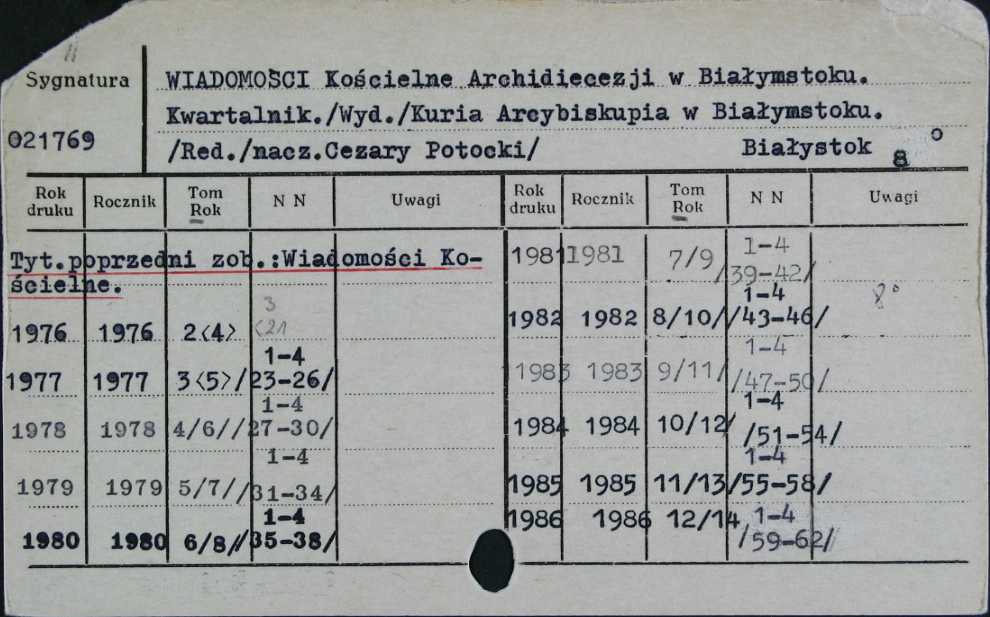 Sygnatura
021769
WIADOMOŚCI Kościelne Archidiecezji w Białymstoku.
Kwartalnik./Wyd./Kuria Arcybiskupia w Białymstoku.
/Red./nacz.Cezary Potocki/ Białystok 8°
Rok druku Rocznik Tom Rok N N Uwagi
Tyt.poprzedni zob.:Wiadomości Ko-
ścielne.
1976 1976 2<4> 3
<21
1-4
1977 1977 3<5>/ /23-26/
1-4
1978 1978 4/6/ /27-30/
1-4
1979 1979 5/7/ /31-34/
1-4
1980 1980 6/8/ /35-38/
Rok druku Rocznik Tom Rok N N Uwagi
1981 1981 7/9 1-4
/39-42/
8°
1-4
1982 1982 8/10/ /43-46/
1-4
1983 1983 9/11/ /47-50/
1-4
1984 1984 10/12/ /51-54/
1-4
1985 1985 11/13/ /55-58/
1986 1986 12/14 1-4
/59-62/